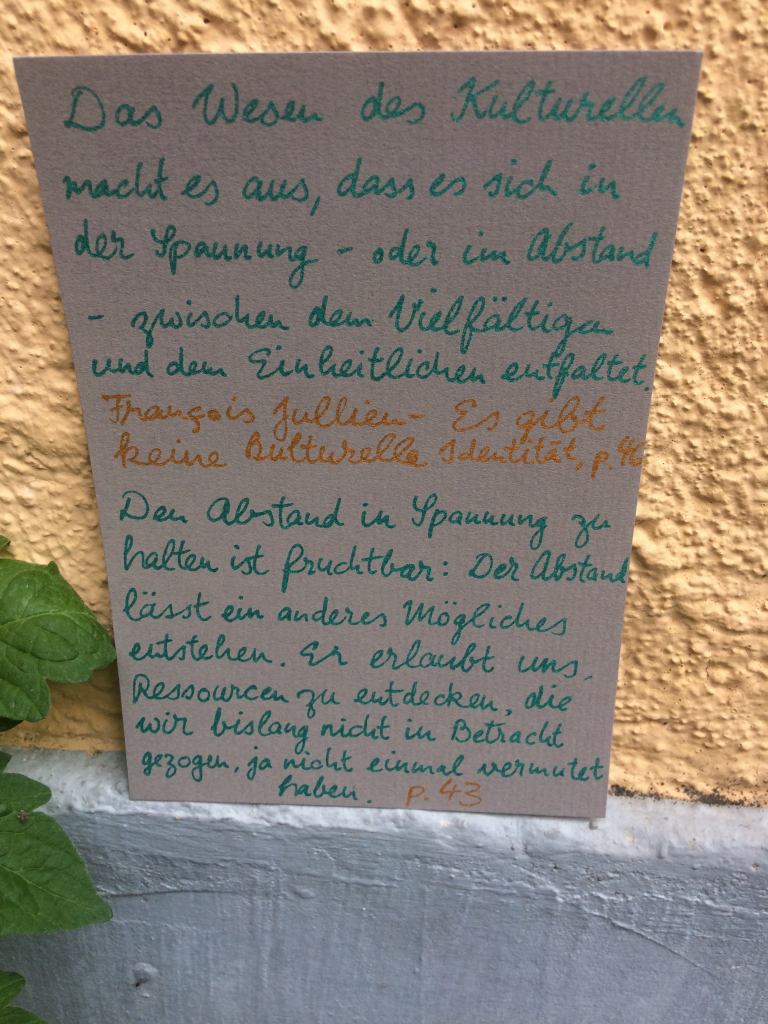 Das Wesen des Kulturellen
macht es aus, dass es sich in
der Spannung - oder im Abstand
- zwischen dem Vielfältigen
und dem Einheitlichen entfaltet.
François Jullien - Es gibt
keine Kulturelle Identität, p.
Den Abstand in Spannung zu
halten ist fruchtbar: Der Abstand
lässt ein anderes Mögliches
entstehen. Er erlaubt uns,
Ressourcen zu entdecken, die
wir bislang nicht in Betracht
gezogen, ja nicht einmal vermutet
haben. p. 43